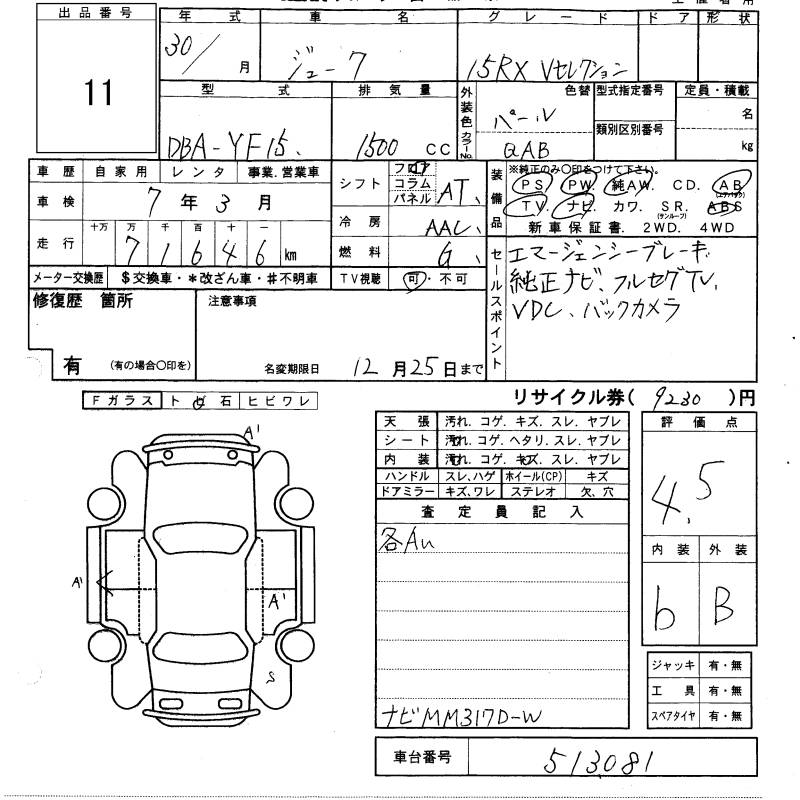 出品番号
11
年 式 車 名 グレード ドア 形状
30/ 月 ジューク 15RX Vセレクション
型 式 排気量 外装色 カラーNo. 色替 型式指定番号 定員・積載
DBA-YF15 1500 CC パール QAB 類別区別番号 名 kg
車歴 自家用 レンタ 事業.営業車
車検 7年3月
走行 十万 万 千 百 十 一
7 1 6 4 6 km
メーター交換歴 $交換車・*改ざん車・#不明車
シフト フロア コラム パネル AT
冷房 AAC
燃料 G
TV視聴 可・不可
装備品 ※純正のみ〇印をつけて下さい。
PS PW. 純AW. CD. AB (エアバック)
TV. ナビ. カワ. SR. (サンルーフ) ABS
新車保証書. 2WD. 4WD
セールスポイント
エマージェンシーブレーキ
純正ナビ、フルセグTV、
VDC、バックカメラ
修復歴 箇所
有 (有の場合〇印を)
注意事項
名変期限日 12月25日まで
リサイクル券( 9230 )円
Fガラス トビ石 ヒビワレ
天張 汚れ. コゲ. キズ. スレ. ヤブレ
シート 汚れ. コゲ. ヘタリ. スレ. ヤブレ
内装 汚れ. コゲ. キズ. スレ. ヤブレ
ハンドル スレ,ハゲ ホイール(CP) キズ
ドアミラー キズ,ワレ ステレオ 欠、穴
評価点
4.5
内装 外装
b B
査定員記入
各Au
ナビMM317D-W
A'
A'
A'
S
ジャッキ 有・無
工具 有・無
スペアタイヤ 有・無
車台番号 513081